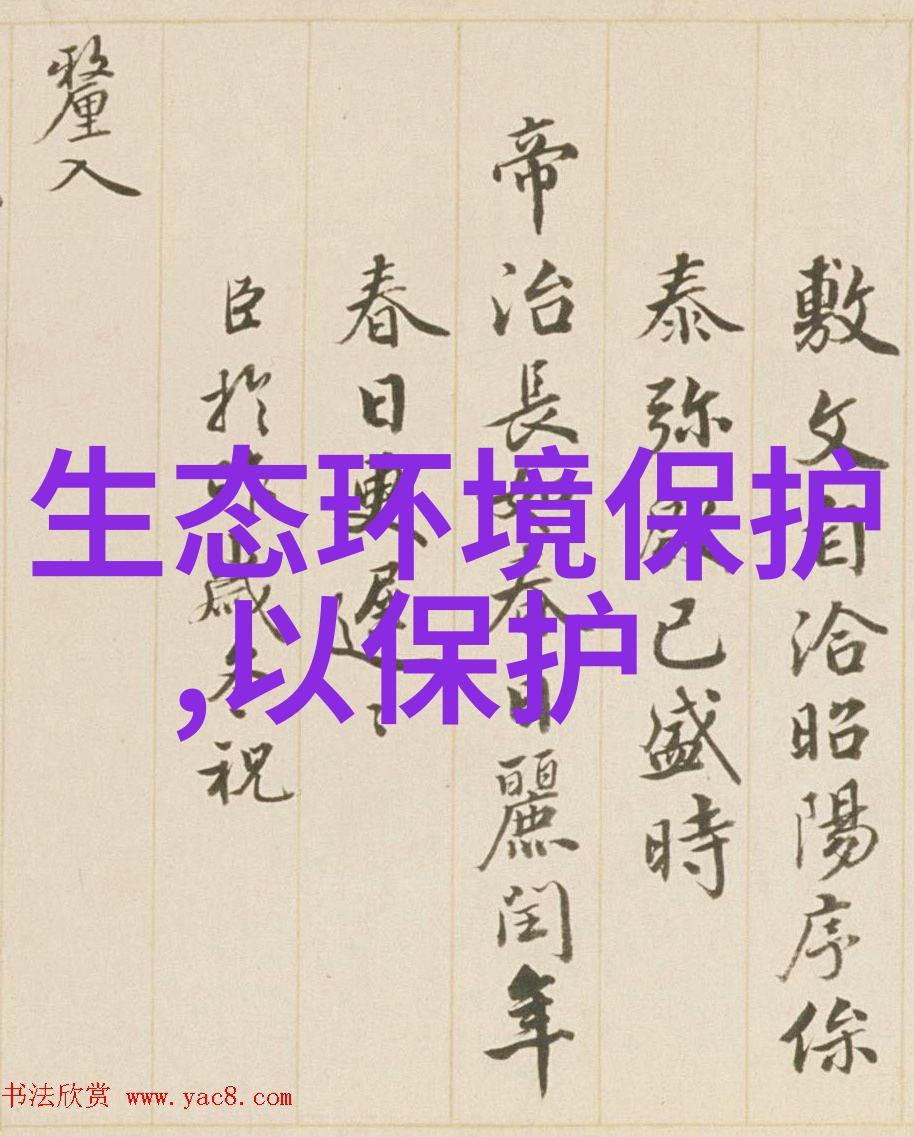 敷文自洽昭陽序
泰弥已盛時
帝治長春日麗閏年
春日更遲
臣於歲祝
釐入
生态环境保护
,以保护
书法欣赏 www.yac8.com